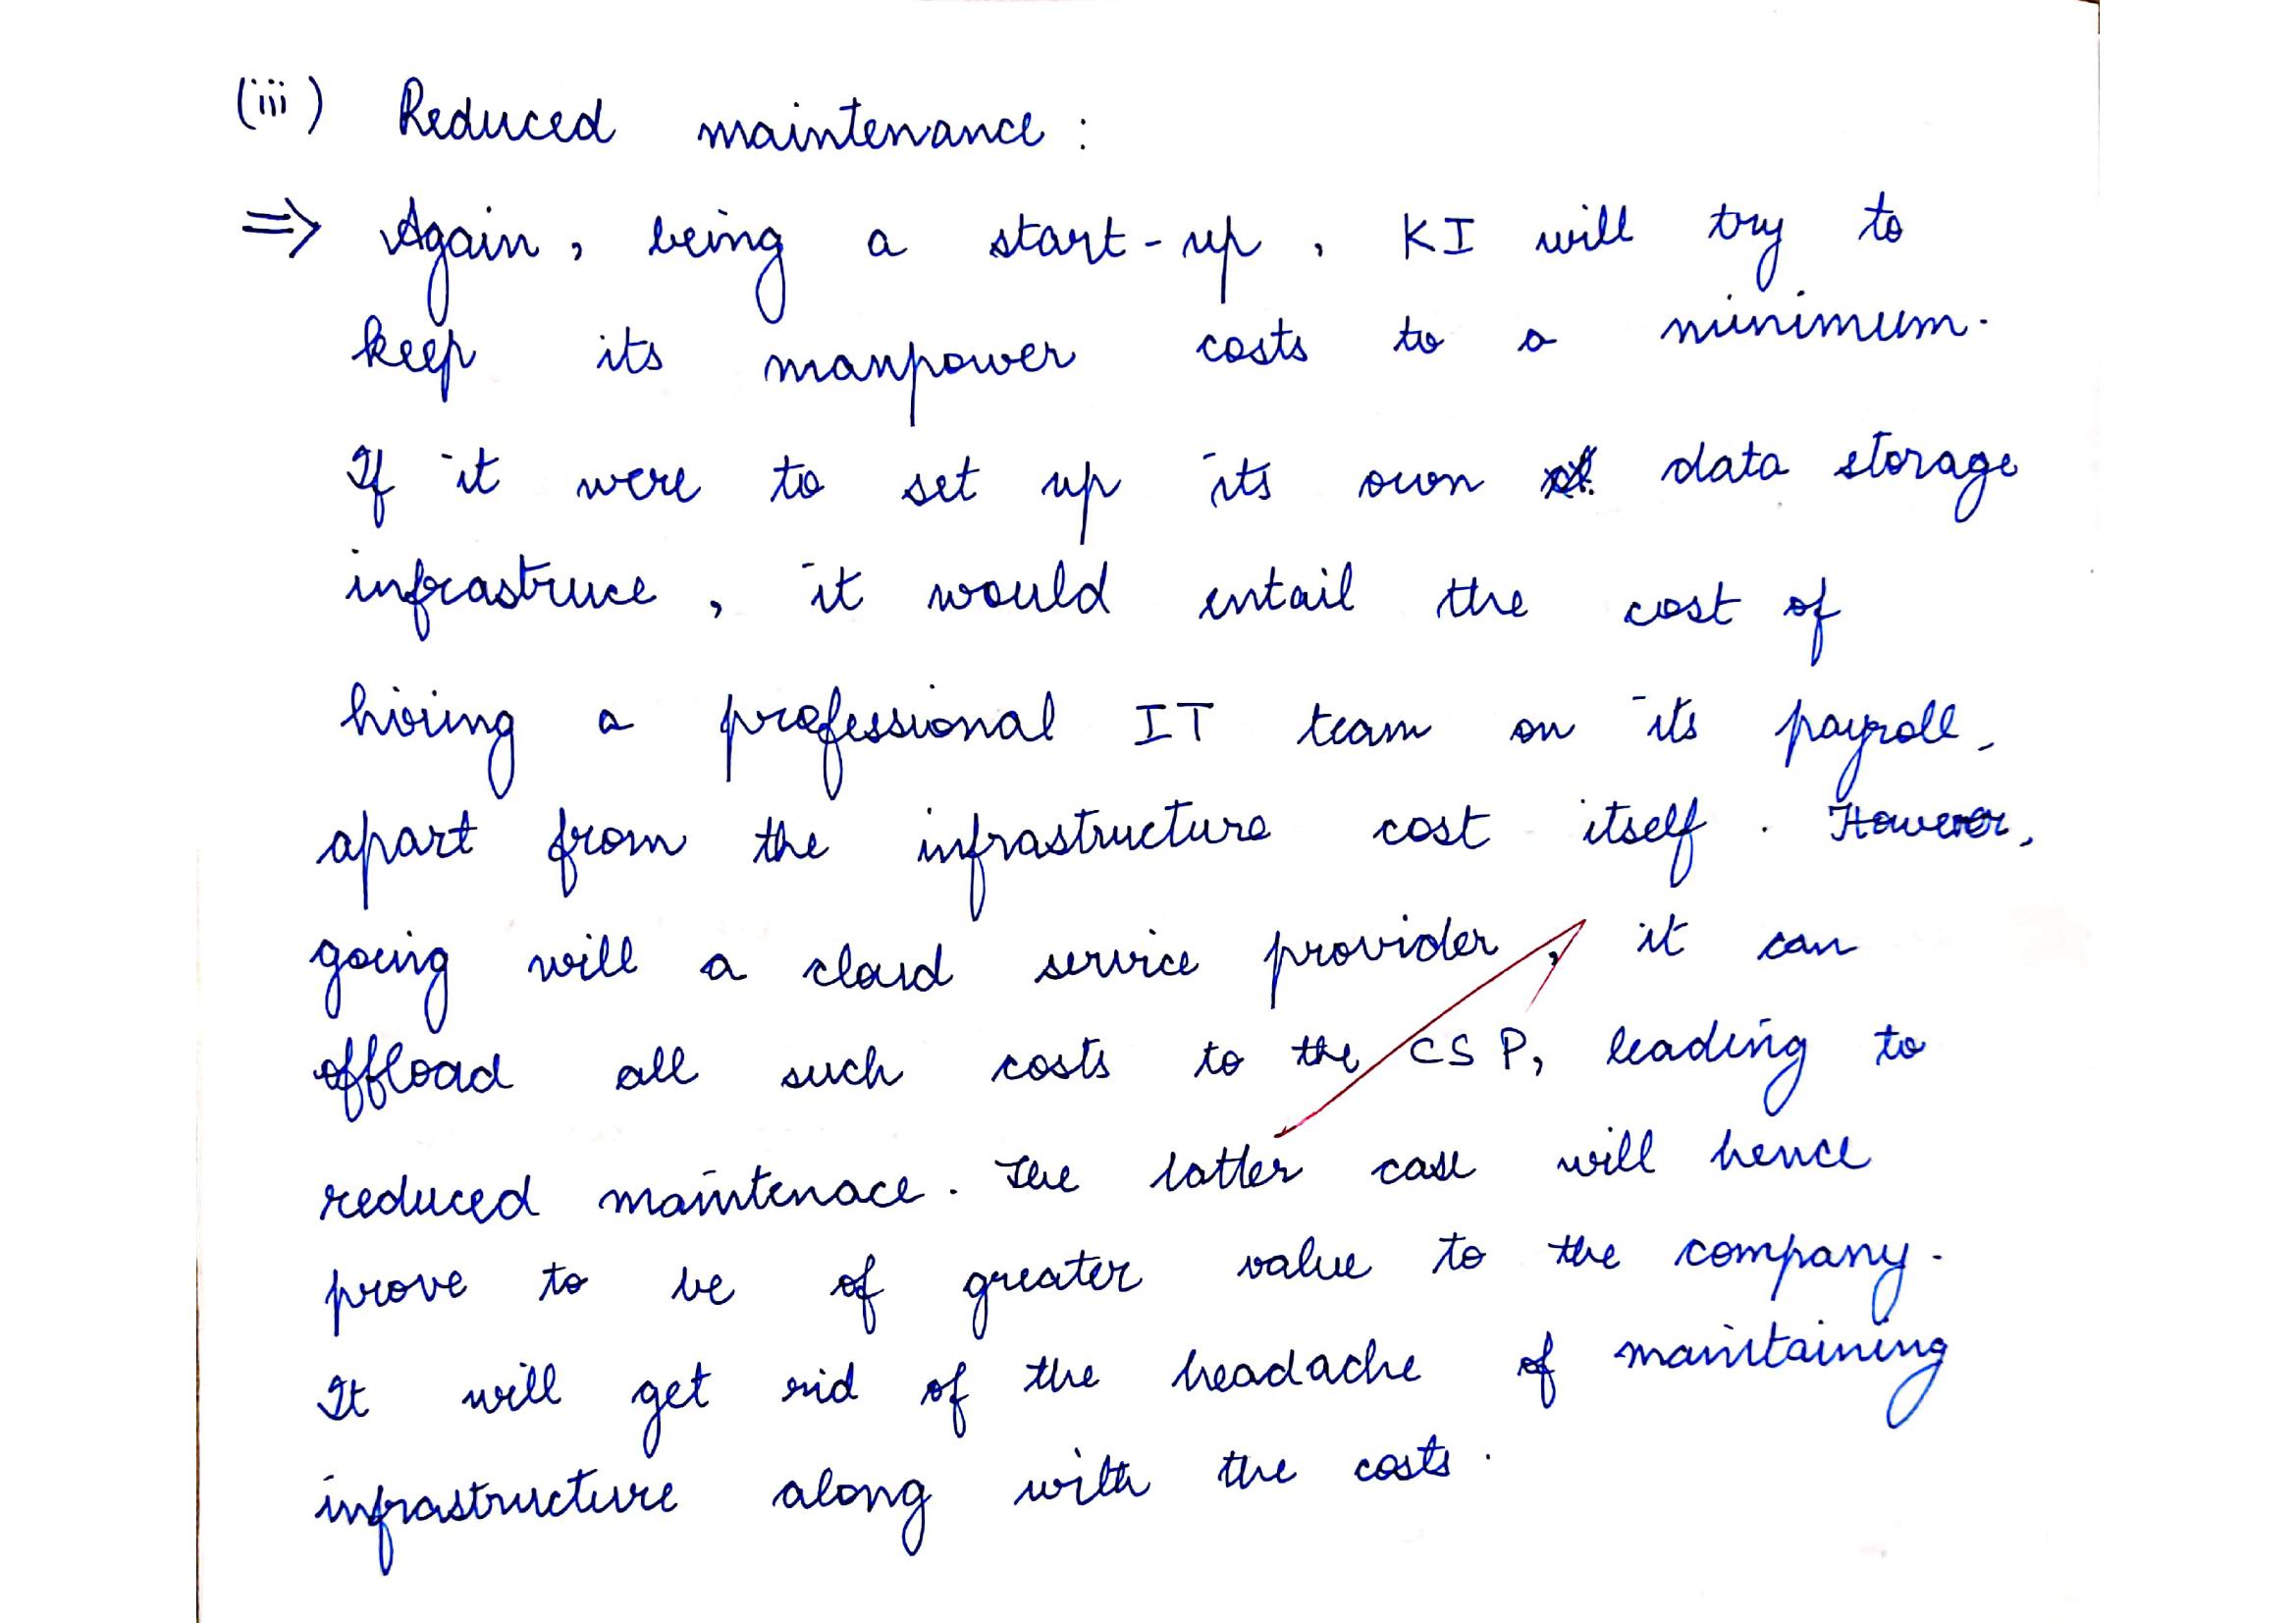 (iii) Reduced maintenance :
⇒ Again, being a start-up, KI will try to
keep its manpower costs to a minimum.
If it were to set up its own data storage
infrastruce, it would entail the cost of
hiring a professional IT team on its payroll,
apart from the infrastructure cost itself. However,
going will a cloud service provider, it can
offload all such costs to the CSP, leading to
reduced maintenace. The latter case will hence
prove to be of greater value to the company.
It will get rid of the headache of maintaining
infrastructure along with the costs.